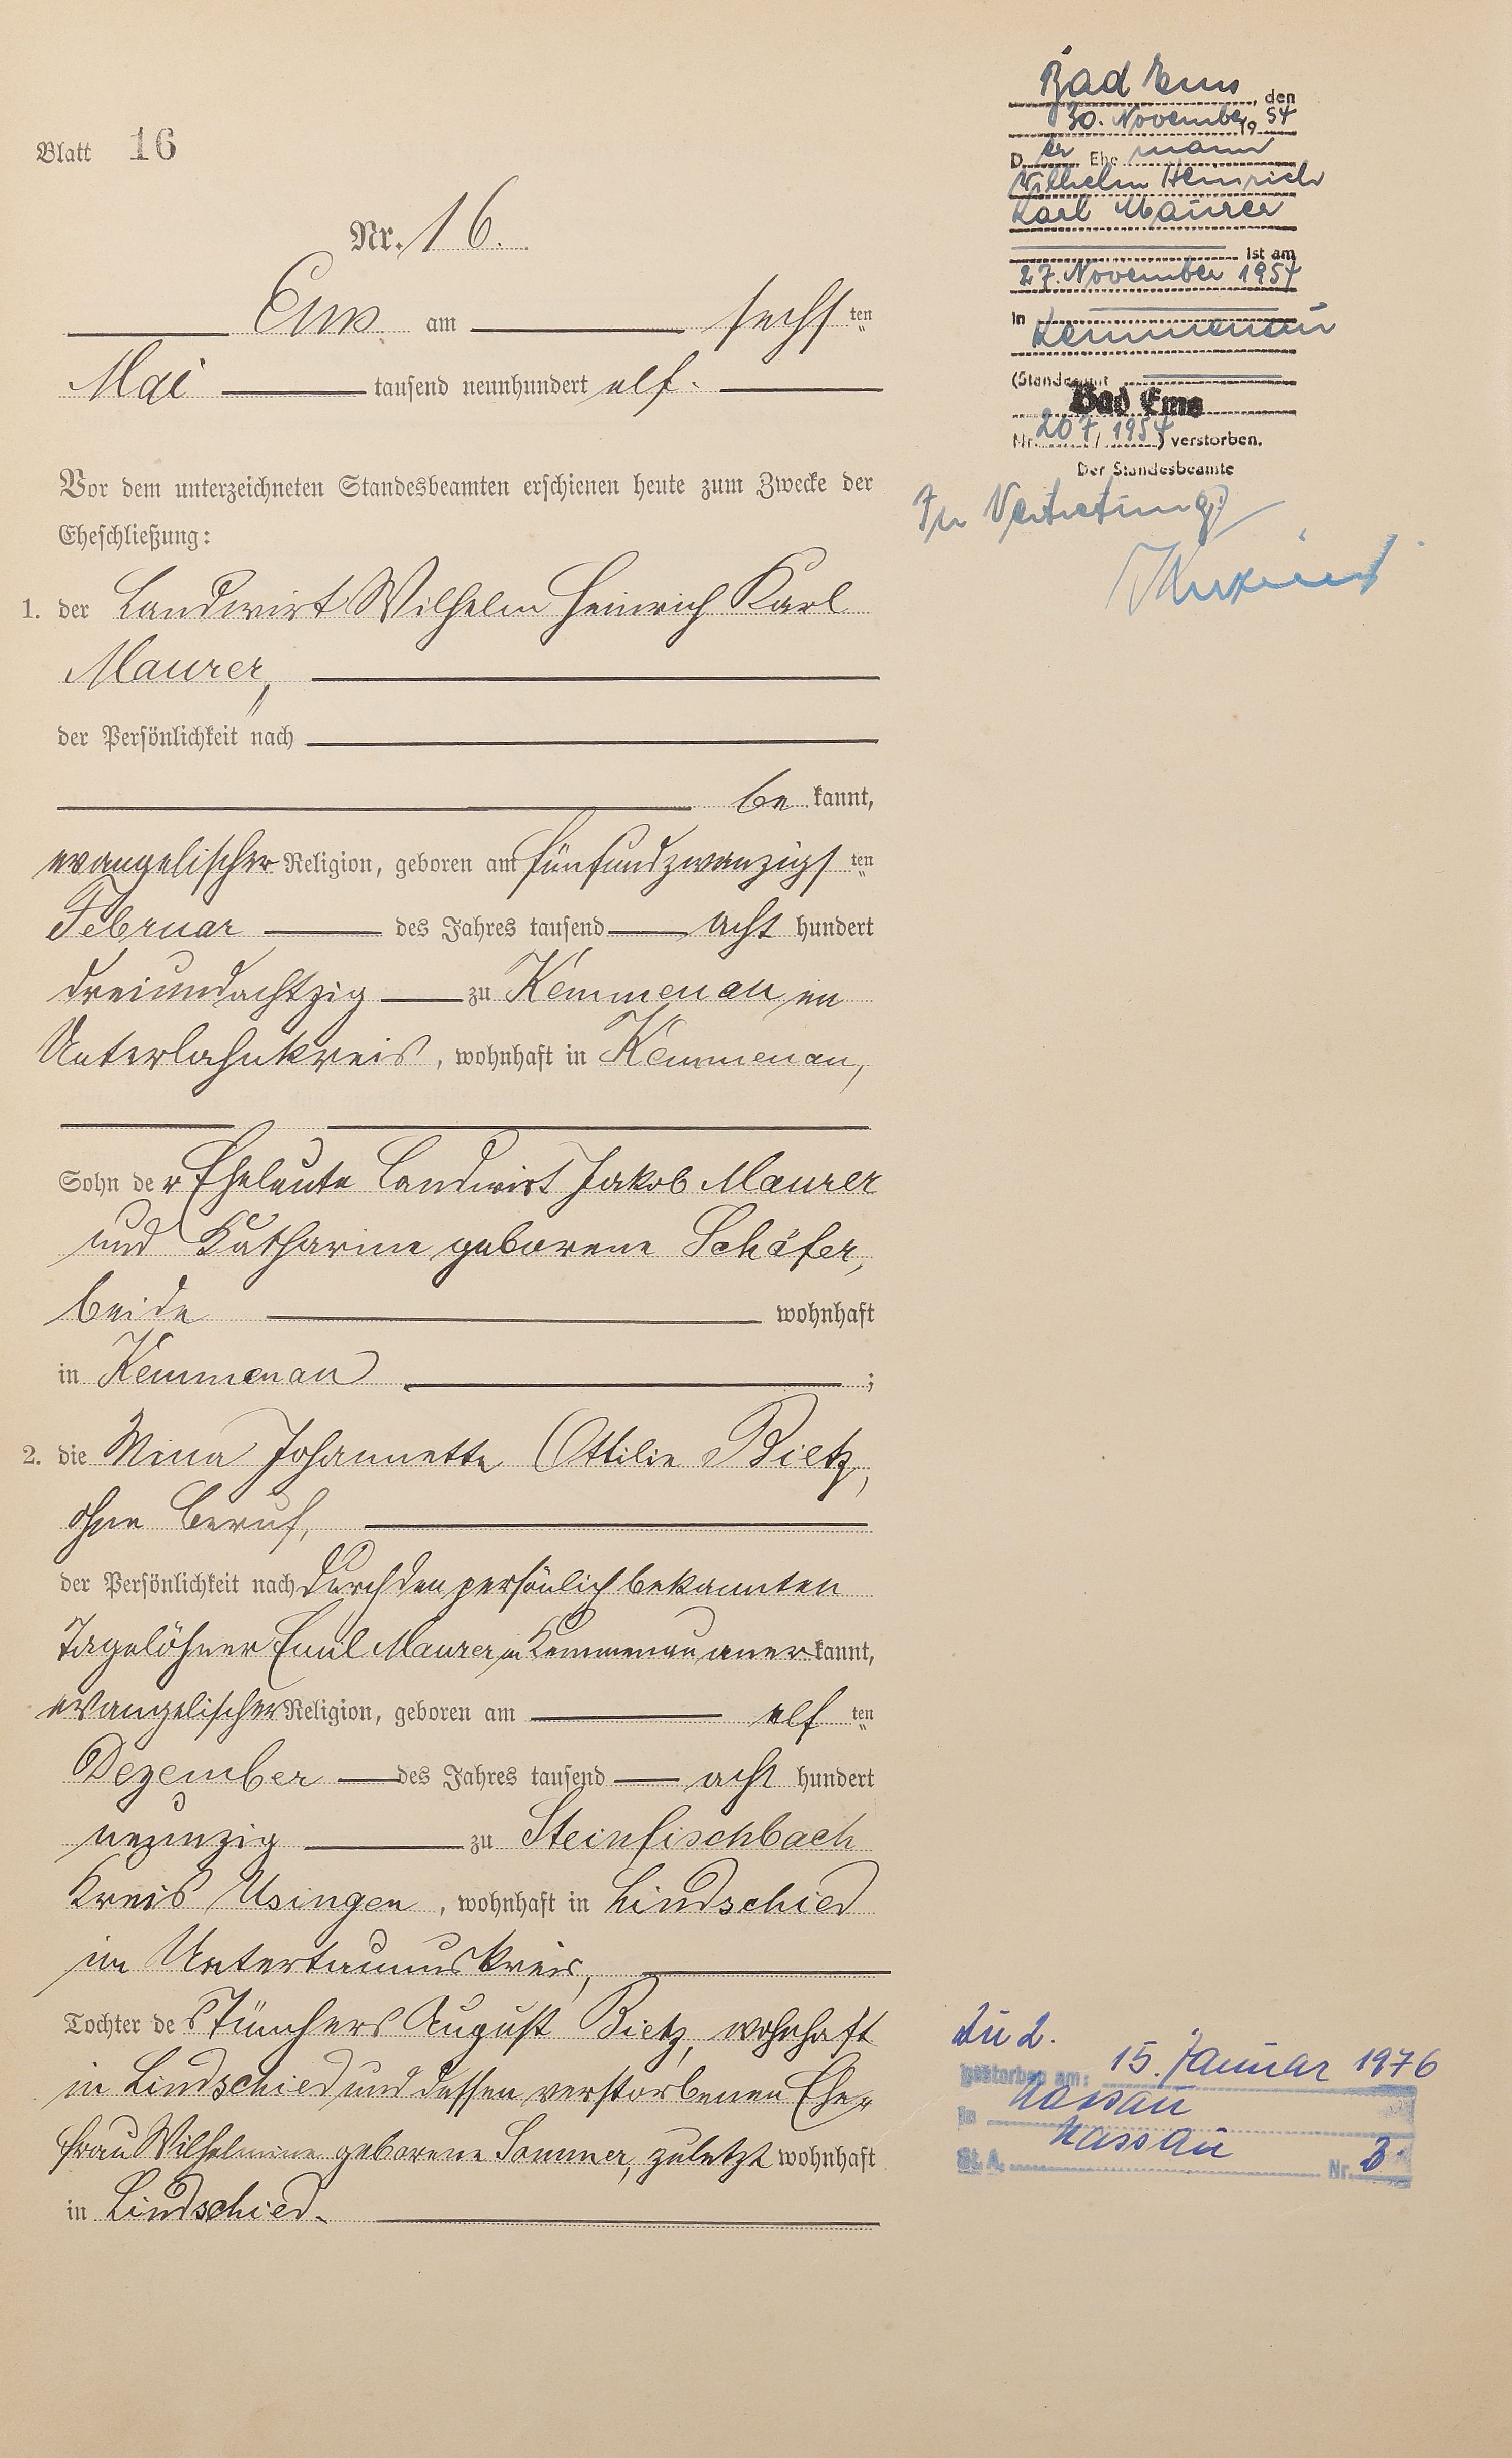 Blatt 16
Nr. 16.
Ems am sechsten
Mai tausend neunhundert elf.
Vor dem unterzeichneten Standesbeamten erschienen heute zum Zwecke der
Eheschließung:
1. der Landwirt Wilhelm Heinrich Karl
Maurer,
der Persönlichkeit nach
be kannt,
evangelischer Religion, geboren am fünfundzwanzigsten
Februar des Jahres tausend acht hundert
dreiundachtzig zu Kemmenau im
Unterlahnkreis, wohnhaft in Kemmenau,
Sohn der Eheleute Landwirt Jakob Maurer
und Katharine geborene Schäfer,
beide wohnhaft
in Kemmenau ;
2. die Mina Johannette Ottilie Bietz,
ohne Beruf,
der Persönlichkeit nach durch den persönlich bekannten
Tagelöhner Emil Maurer in Kemmenau anerkannt,
evangelischer Religion, geboren am elften
Dezember des Jahres tausend acht hundert
neunzig zu Steinfischbach
Kreis Usingen, wohnhaft in Lindschied
im Untertaunuskreis,
Tochter des Tünchers August Bietz, wohnhaft
in Lindschied und dessen verstorbenen Ehe-
frau Wilhelmine geborene Sommer, zuletzt wohnhaft
in Lindschied.
Bad Ems, den
30. November 1954
Der Ehemann
Wilhelm Heinrich
Karl Maurer
ist am
27. November 1954
in Kemmenau
(Standesamt
Bad Ems
Nr. 207/1954) verstorben.
Der Standesbeamte
In Vertretung
Zu 2.
gestorben am: 15. Januar 1976
in Nassau
St. A. Nassau Nr. 3